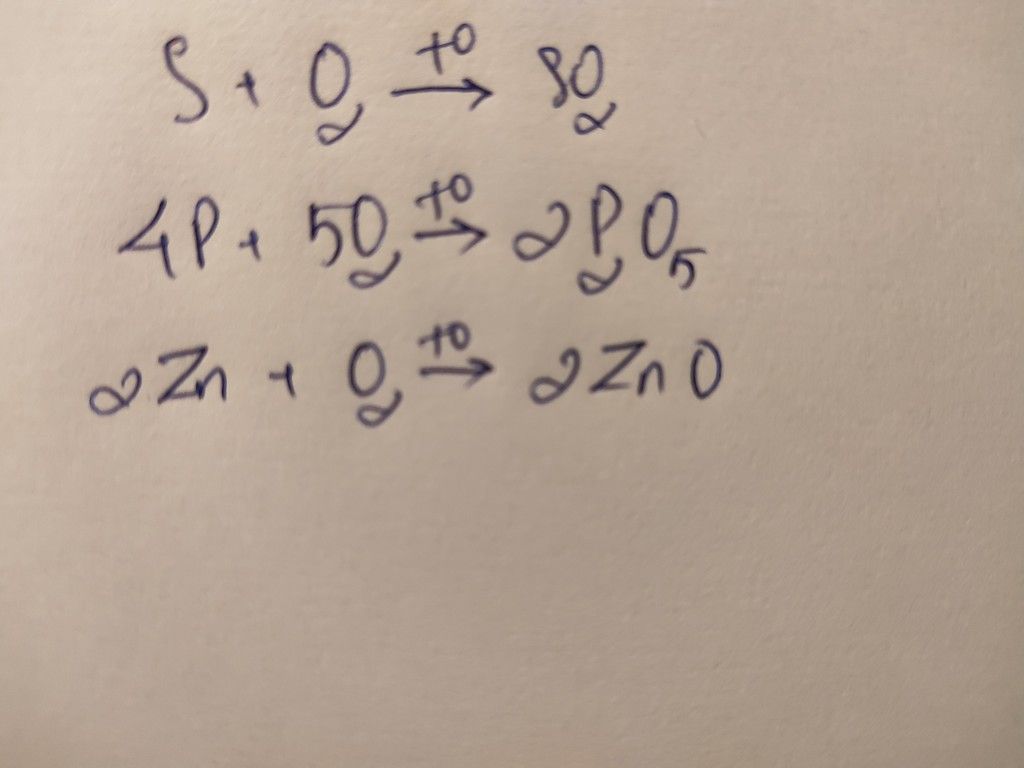 S + O₂ →(+0) SO₂
4P + 5O₂ →(+0) 2P₂O₅
2Zn + O₂ →(+0) 2ZnO